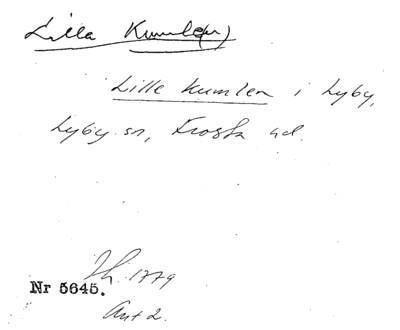 Lilla Kumle(n)
Lille Kumlen i Lyby,
Lyby sn, Frosta hd.
Jh. 1779
Nr 5645.
Akt 2.